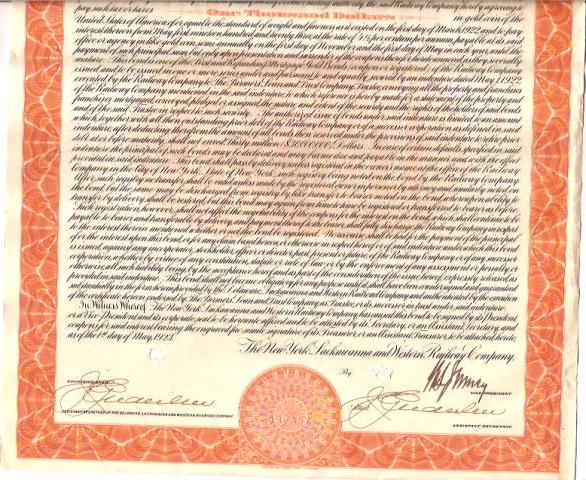 pay such tax or taxes
One Thousand Dollars in gold coin of the
United States of America of or equal to the standard of weight and fineness as it existed on the first day of March 1922, and to pay
interest thereon from May first, nineteen hundred and twenty three, at the rate of per centum per annum, payable at its said
office or agency in like gold coin, semi annually on the first day of November and the first day of May, in each year, until the
payment of said principal sum, but only upon presentation and surrender of the coupons thereto annexed as they severally
mature. This bond is one of the First and Refunding Mortgage Gold Bonds
issued and to be issued in one or more series under and pursuant to and equally secured by an indenture dated May 1, 1922
executed by the Railway Company to The Farmers' Loan and Trust Company, Trustee, covering all the property and franchises
of the Railway Company mentioned in the said indenture, to which reference is hereby made for a statement of the property and
franchises mortgaged, conveyed, pledged or assigned, the nature and extent of the security and the rights of the holders of said bonds
and of the said Trustee in respect of such security. The authorized issue of bonds under said indenture is limited to an amount
which, together with all then outstanding prior debt of the Railway Company, or of a successor corporation as defined in said
indenture, after deducting therefrom the amount of all bonds then reserved under the provisions of said indenture to retire prior
debt at or before maturity, shall not exceed thirty million Dollars. In case of certain defaults specified in said
indenture the principal of such bonds may be declared and may become due and payable in the manner and with the effect
provided in said indenture. This bond shall pass by delivery unless registered in the owner's name at the office of the Railway
Company in the City of New York, State of New York, such registry being noted on the bond by the Railway Company.
After such registry no transfer shall be valid unless made by the registered owner in person or by attorney and similarly noted on
the bond, but the same may be discharged from registry by like transfer to bearer noted on the bond, and thereupon ability to
transfer by delivery shall be restored, but this bond may again from time to time be registered or transferred to bearer as before.
Such registration, however, shall not affect the negotiability of the coupons for the interest on the bond, which shall continue to be
payable to bearer and transferable by delivery, and payment thereof to the bearer shall fully discharge the Railway Company in respect
to the interest therein mentioned whether or not the bond be registered. No recourse shall be had for the payment of the principal of
or the interest upon this bond, or for any claim based hereon, or otherwise in respect hereof or of said indenture under which this bond
is issued, against any incorporator, stockholder, officer or director, past, present or future, of the Railway Company or of any successor
corporation, whether by virtue of any constitution, statute or rule of law, or by the enforcement of any assessment or penalty, or
otherwise, all such liability being, by the acceptance hereof and as part of the consideration of the issue hereof, expressly released as
provided in said indenture. This bond shall not become obligatory for any purpose until it shall have been countersigned and guaranteed
substantially in the form hereon presented by The Delaware, Lackawanna and Western Railroad Company and authenticated by the execution
of the certificate hereon endorsed by The Farmers' Loan and Trust Company, as Trustee, or its successor, as past
In Witness Whereof, The New York, Lackawanna and Western Railway Company has caused this bond to be signed by its President
or a Vice President and its corporate seal to be hereunto affixed and to be attested by its Secretary, or an Assistant Secretary, and
coupons for said interest bearing the engraved facsimile signature of its Treasurer, or an Assistant Treasurer, to be attached hereto,
as of the 1st day of May, 1923.
The New York, Lackawanna and Western Railway Company,
By
VICE PRESIDENT
COUNTERSIGNED
Attest
ASSISTANT SECRETARY OF THE DELAWARE, LACKAWANNA AND WESTERN RAILROAD COMPANY
ASSISTANT SECRETARY